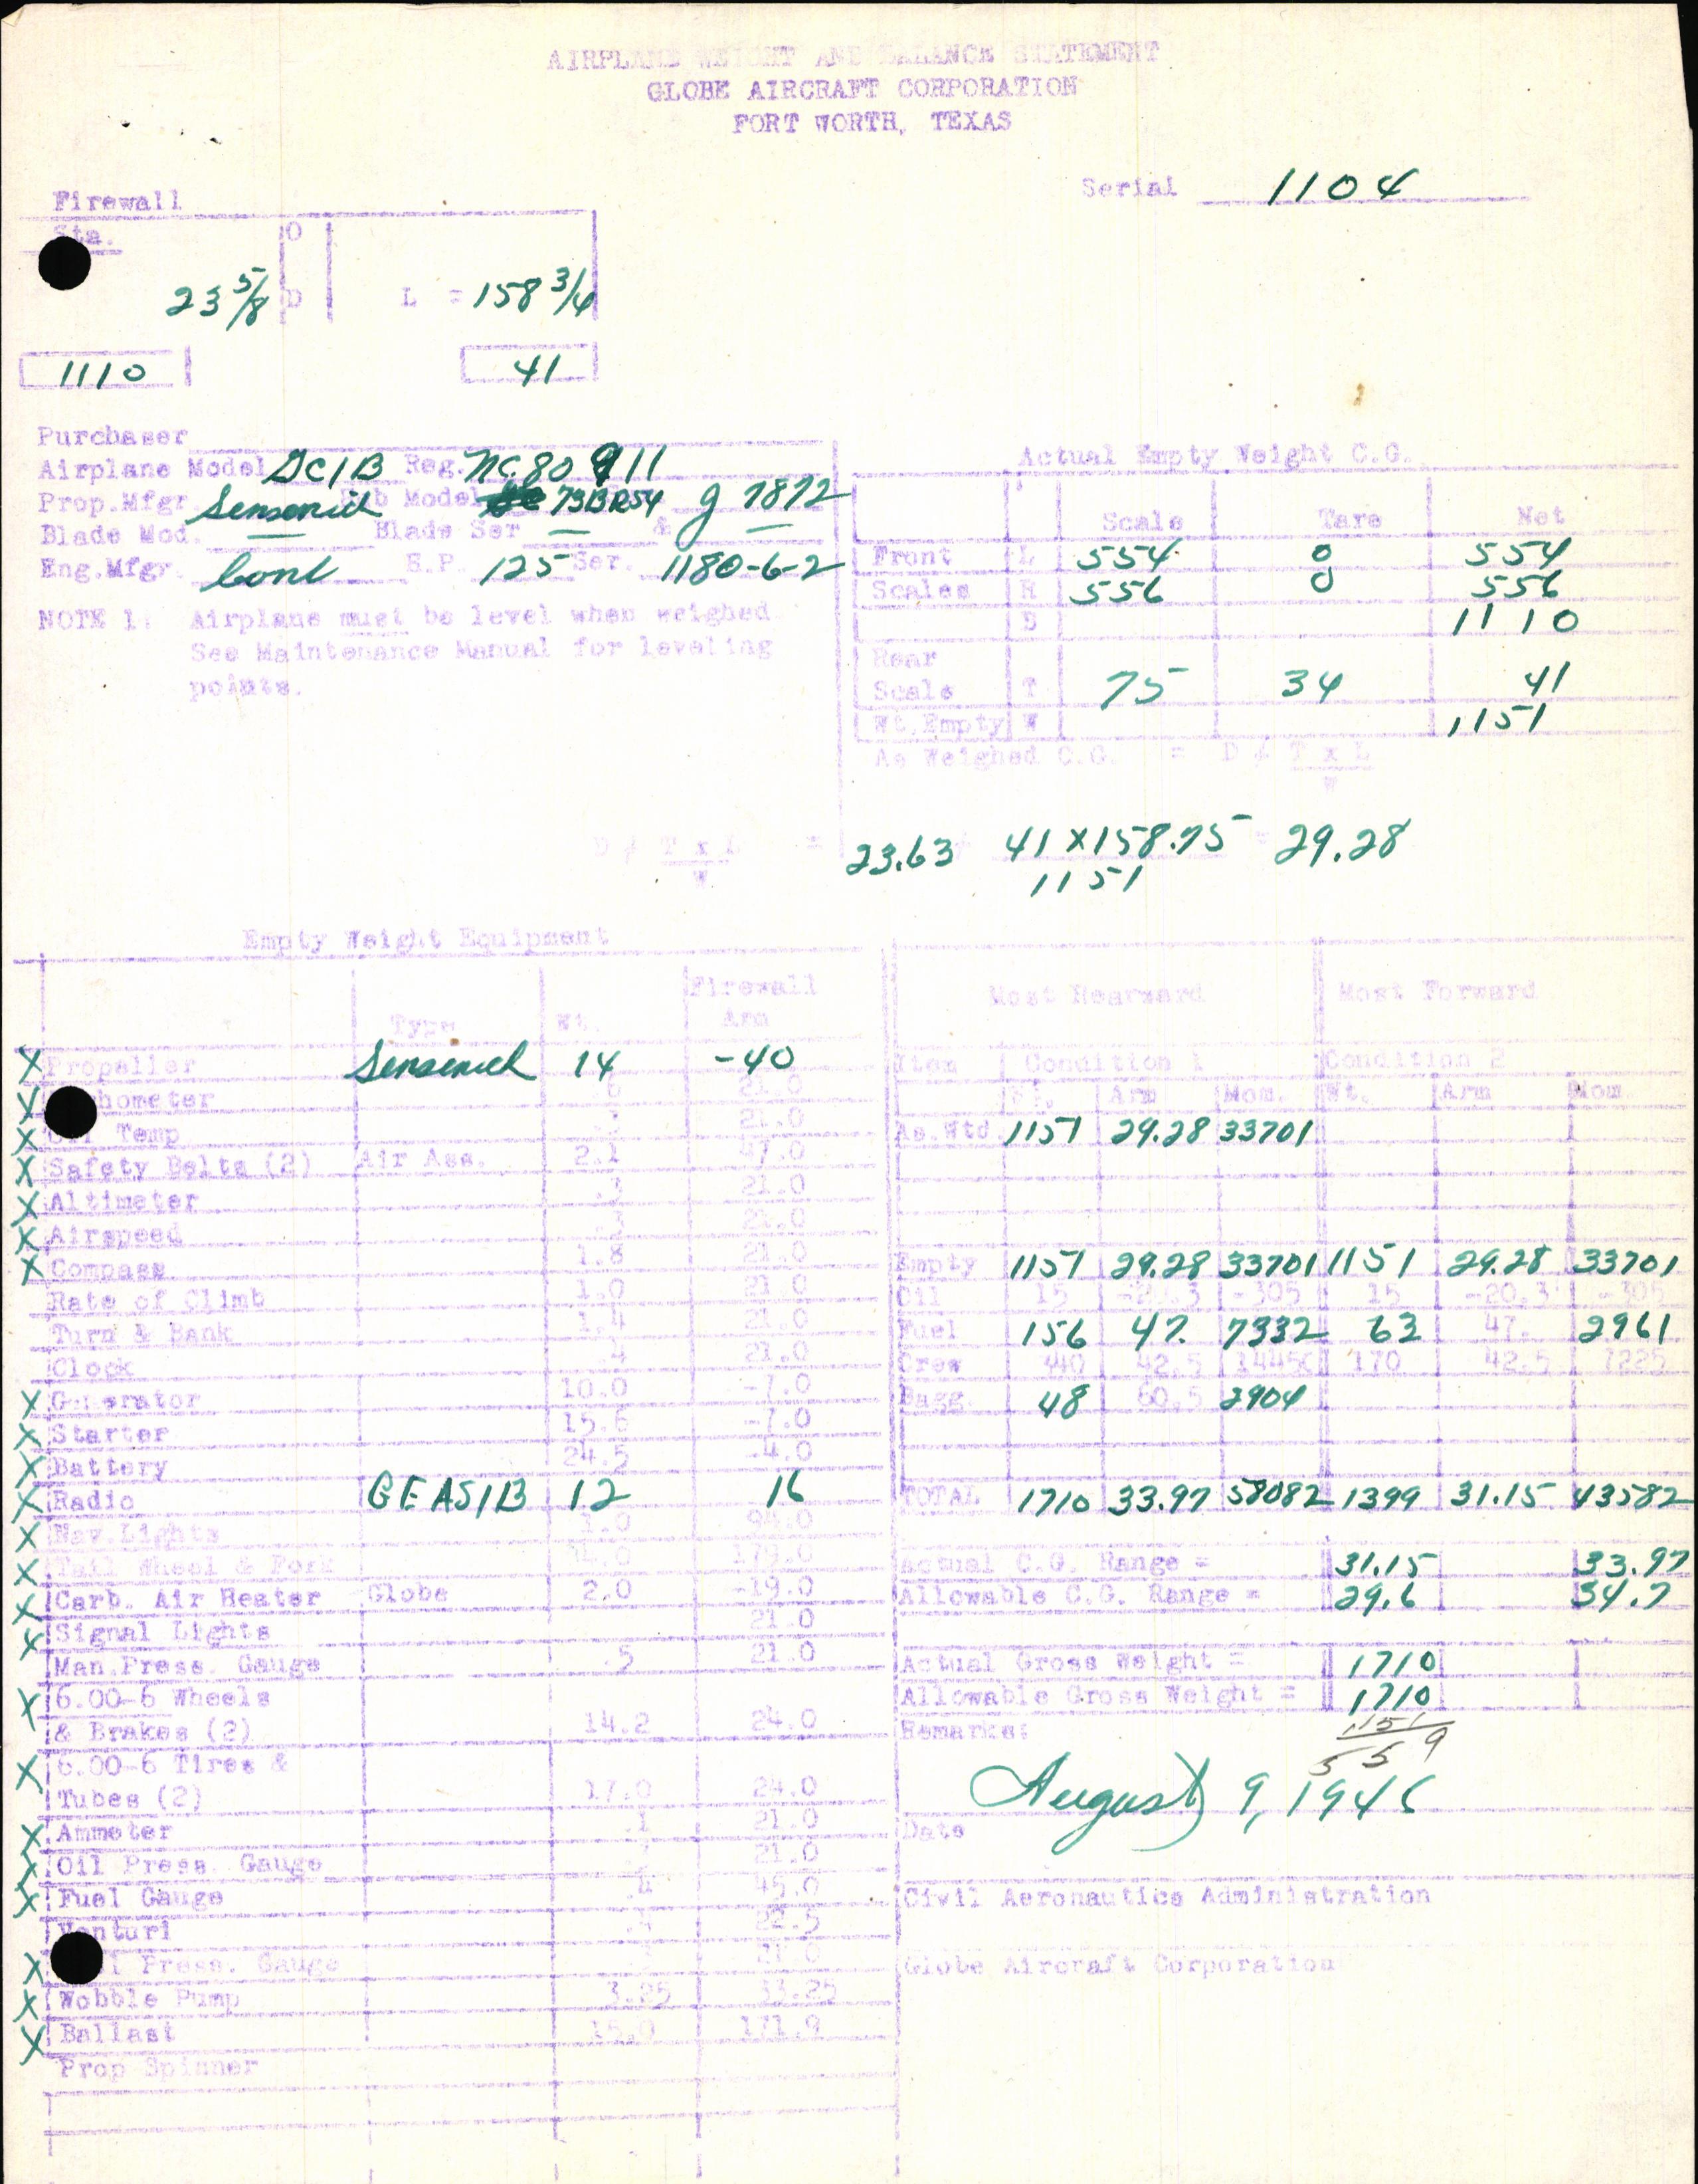 AIRPLANE WEIGHT AND BALANCE STATEMENT
GLOBE AIRCRAFT CORPORATION
FORT WORTH, TEXAS
Serial 1104
Firewall
Sta. O
23 5/8 D L = 158 3/4
1110 41
Purchaser
Airplane Model GC1B Reg. NC 80911
Prop.Mfgr. Sensenich Model 73BR54 7872
Blade Mod. — Blade Ser — & —
Eng.Mfgr. Cont H.P. 125 Ser. 1180-6-2
NOTE 1: Airplane must be level when weighed
See Maintenance Manual for leveling
points.
Actual Empty Weight C.G.
Scale Tare Net
Front L 554 0 554
Scales R 556 0 556
1110
Rear
Scale T 75 34 41
Wt.Empty W 1151
As Weighed C.G. = D ≠ T x L
W
D ≠ T x L = 23.63 41 x 158.75 = 29.28
W 1151
Empty Weight Equipment
Firewall
Type Wt. Arm
X Propeller Sensenich 14 -40
X hometer 21.0
X Temp 21.0
X Safety Belts (2) Air Ass. 2.1 47.0
X Altimeter 21.0
X Airspeed 21.0
X Compass 1.8 21.0
Rate of Climb 1.0 21.0
Turn & Bank 1.4 21.0
Clock .4 21.0
X Generator 10.0 -7.0
X Starter 15.6 -7.0
X Battery 24.5 -4.0
X Radio GE AS1B 12 16
X Nav.Lights 1.0
X Tail Wheel & Fork
X Carb. Air Heater Globe 2.0 -19.0
X Signal Lights 21.0
Man.Press. Gauge .5 21.0
X 6.00-6 Wheels
& Brakes (2) 14.2 24.0
X 6.00-6 Tires &
Tubes (2) 17.0 24.0
X Ammeter .1 21.0
X Oil Press. Gauge 21.0
X Fuel Gauge 45.0
Venturi 22.5
X Press. Gauge 21.0
X Wobble Pump 3.25 33.25
X Ballast 15.0 171.9
Prop Spinner
Most Rearward Most Forward
Item Condition 1 Condition 2
Wt. Arm Mom. Wt. Arm Mom
As.Wtd. 1151 29.28 33701
Empty 1151 29.28 33701 1151 29.28 33701
Oil 15 -20.3 -305 15 -20.3 -305
Fuel 156 47. 7332 63 47. 2961
Crew 340 42.5 14450 170 42.5 7225
Bagg. 48 60.5 2904
TOTAL 1710 33.97 58082 1399 31.15 43582
Actual C.G. Range = 31.15 33.97
Allowable C.G. Range = 29.6 34.7
Actual Gross Weight = 1710
Allowable Gross Weight = 1710
Remarks: 1151
559
August 9, 1946
Date
Civil Aeronautics Administration
Globe Aircraft Corporation